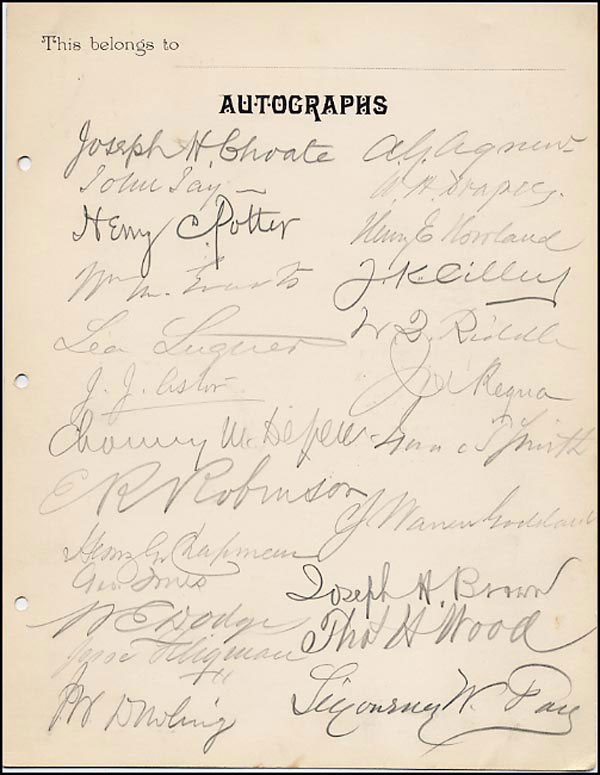 This belongs to
AUTOGRAPHS
Joseph H. Choate
John Jay
Henry C. Potter
Wm M. Evarts
J. J. Astor
Chauncey M. Depew
E R Robinson
Henry G. Chapman
Geo Jones
W E Dodge
Jesse Seligman
P. W.
A. G. Agnew
W. H. Draper
Henry E Howland
J. K. Cilley
W. Riddle
Requa
Smith
J Warren Goddard
Joseph H. Brown
Thos H Wood
Sigourney W. Fay